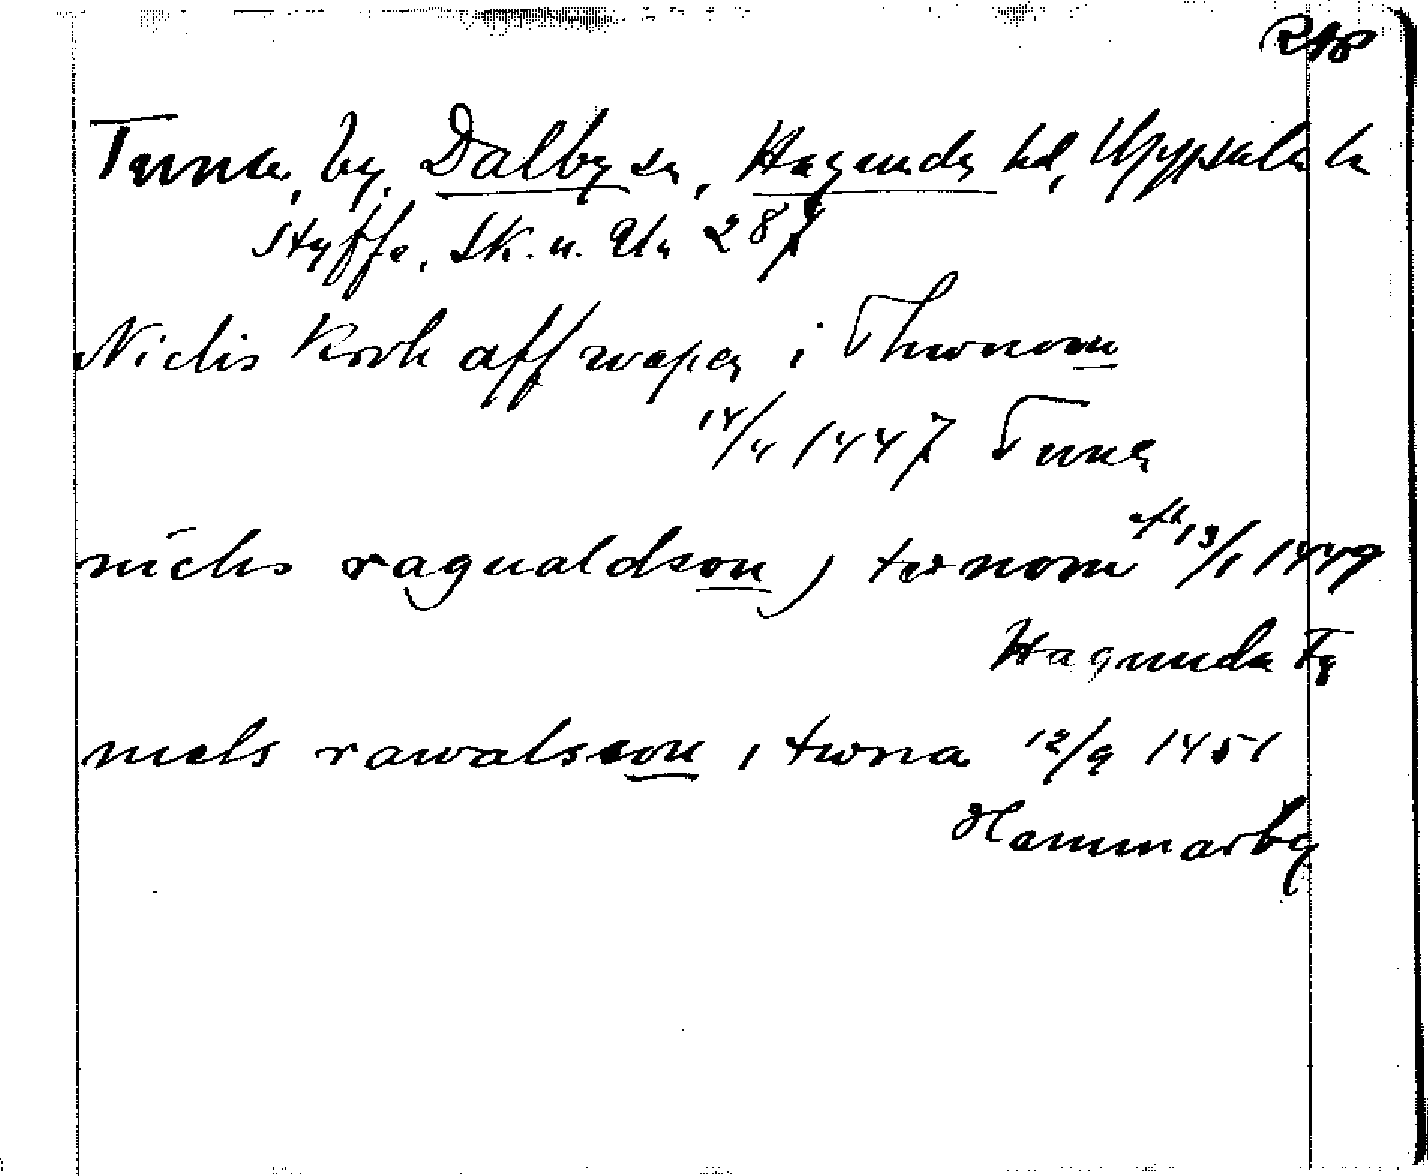 RAp
Tuna, by, Dalby sn, Hagunda hd, Uppsala ln
Styffe, Sk. u. Un 287
Niclis Krok aff wapen i Thwnom
14/4 1447 Tuna
niclis ragualdson j twnom eft 13/1 1449
Hagunda Tg
niels rawalsson i twna 12/9 1451
Hammarby